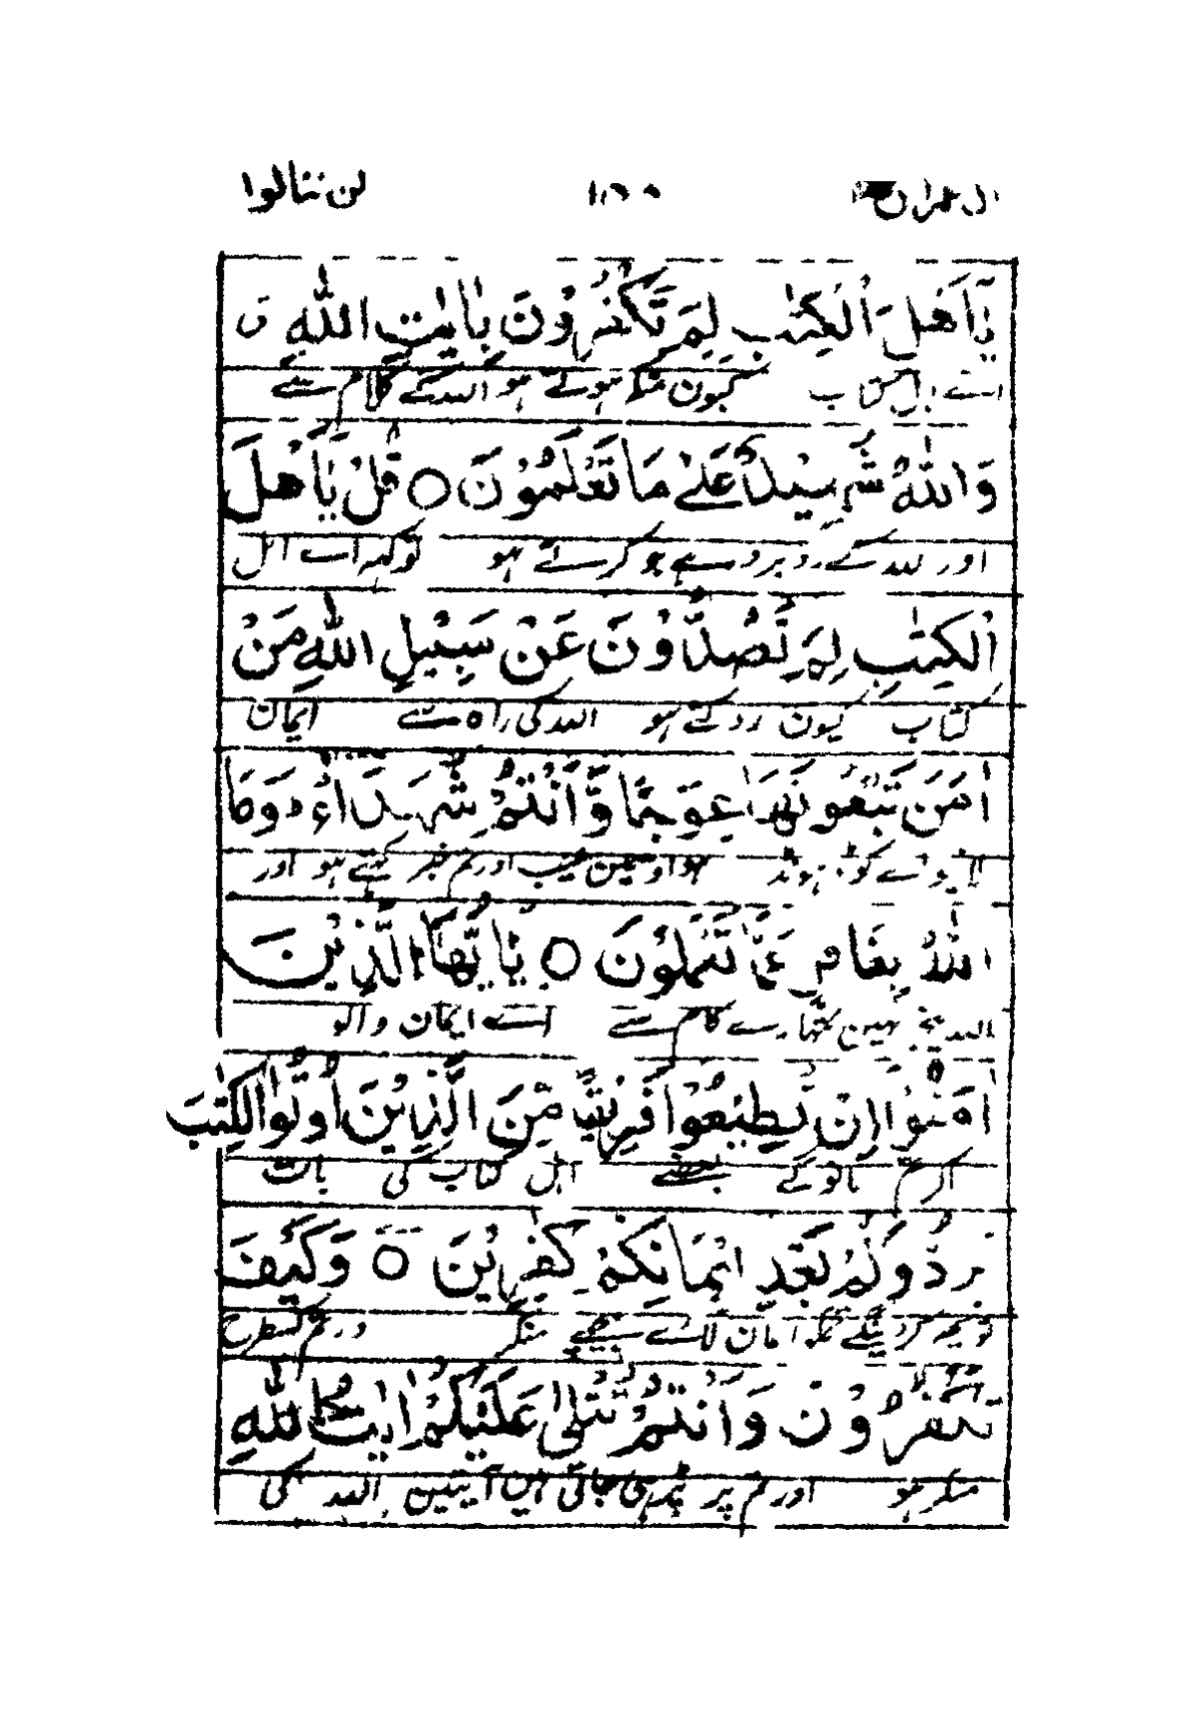 ال عمران
لن تنالوا
يٰٓاَهْلَ الْكِتٰبِ لِمَ تَكْفُرُوْنَ بِاٰيٰتِ اللّٰهِ ق
اے اہل کتاب کیون منکر ہوتے ہو اللہ کے کلام سے
وَاللّٰهُ شَهِيْدٌ عَلٰى مَا تَعْمَلُوْنَ ○ قُلْ يٰٓاَهْلَ
اور اللہ کے روبرو ہے جو کرتے ہو تو کہہ اے اہل
الْكِتٰبِ لِمَ تَصُدُّوْنَ عَنْ سَبِيْلِ اللّٰهِ مَنْ
کتاب کیون روکتے ہو اللہ کی راہ سے ایمان
اٰمَنَ تَبْغُوْنَهَا عِوَجًا وَّاَنْتُمْ شُهَدَآءُ وَمَا
عیب اور تم خبر رکھتے ہو اور
اللّٰهُ بِغَافِلٍ عَمَّا تَعْمَلُوْنَ ○ يٰٓاَيُّهَا الَّذِيْنَ
اللہ بیخبر نہین تمہارے کام سے اے ایمان والو
اٰمَنُوْٓا اِنْ تُطِيْعُوْا فَرِيْقًا مِّنَ الَّذِيْنَ اُوْتُوا الْكِتٰبَ
اگر تم مانو گے بعضے اہل کتاب کی بات
يَرُدُّوْكُمْ بَعْدَ اِيْمَانِكُمْ كٰفِرِيْنَ ○ وَكَيْفَ
تو پھر کر دینگے تمکو ایمان لائے پیچھے منکر اور تم کسطرح
تَكْفُرُوْنَ وَاَنْتُمْ تُتْلٰى عَلَيْكُمْ اٰيٰتُ اللّٰهِ
منکر ہو اور تم پر پڑہی جاتی ہین آیتین اللہ کی